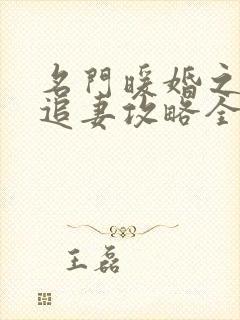 名門暖婚之
追妻攻略全
王磊